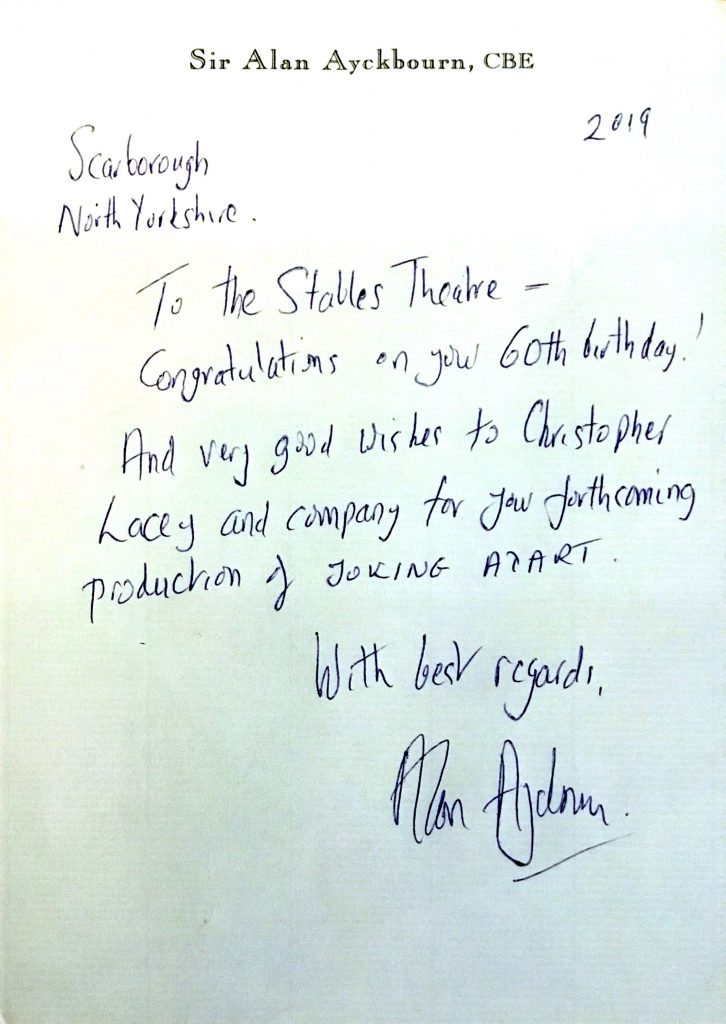 Sir Alan Ayckbourn, CBE
2019
Scarborough
North Yorkshire.
To the Stables Theatre –
Congratulations on your 60th birthday!
And very good wishes to Christopher
Lacey and company for your forthcoming
production of JOKING APART.
With best regards,
Alan Ayckbourn.